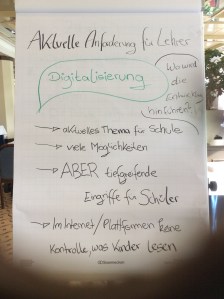 Aktuelle Anforderung für Lehrer
Digitalisierung
Wo wird
die
Entwicklung
hinführen?
→ aktuelles Thema für Schule
→ viele Möglichkeiten
→ ABER tiefgreifende
Eingriffe für Schüler
→ Im Internet/Plattformen keine
Kontrolle, was Kinder lesen